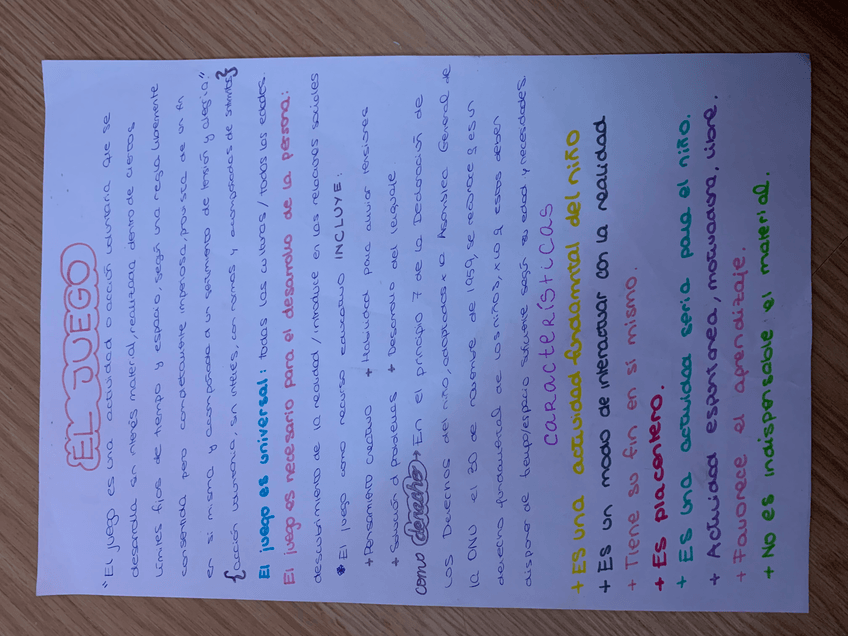 EL JUEGO
"El juego es una actividad o acción voluntaria que se
desarrolla sin interés material, realizada dentro de ciertos
límites fijos de tiempo y espacio, según una regla libremente
consentida pero completamente imperiosa, provista de un fin
en si misma y acompañada a un sentimiento de tensión y alegría"
{acción voluntaria, sin interés, con normas y acompañadas de sentmtos}
El juego es universal: todas las culturas / todas las edades.
El juego es necesario para el desarrollo de la persona:
descubrimiento de la realidad / introduce en las relaciones sociales
* El juego como recurso educativo INCLUYE:
+ Pensamiento creativo + Habilidad para aliviar tensiones
+ Solución d problemas + Desarrollo del lenguaje
como derecho → En el principio 7 de la Declaración de
los Derechos del niño, adoptados x la Asamblea General de
la ONU el 30 de noviembre de 1959, se reconoce q es un
derecho fundamental de los niños, x lo q estos deben
disponer de tiempo/espacio suficiente según su edad y necesidades
características
+ Es una actividad fundamntal del niño
+ Es un modo de interactuar con la realidad
+ Tiene su fin en sí mismo.
+ Es placentero.
+ Es una actividad seria para el niño.
+ Actividad espontánea, motivadora, libre.
+ Favorece el aprendizaje.
+ No es indispensable el material.